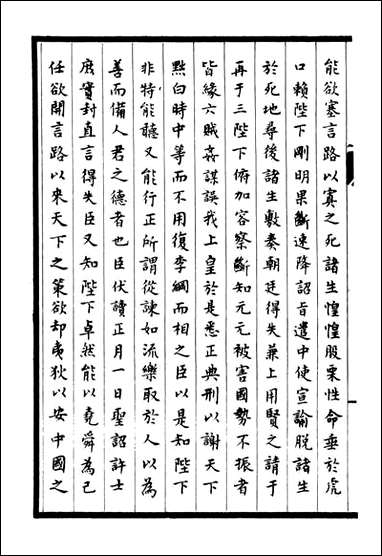 能欲塞言路以寘之死諸生惶惶股栗性命垂於虎
口賴陛下剛明果斷速降詔旨遣中使宣諭脫諸生
於死地尋後諸生敷奏朝廷得失兼上用賢之請于
再于三陛下俯加容察斷知元元被害國勢不振者
皆緣六賊姦謀誤我上皇於是悉正典刑以謝天下
黜白時中等而不用復李綱而相之臣以是知陛下
非特能聽又能行正所謂從諫如流樂取於人以為
善而備人君之德者也臣伏讀正月一日聖詔許士
庶實封直言得失臣又知陛下卓然能以堯舜為己
任欲開言路以來天下之策欲却夷狄以安中國之